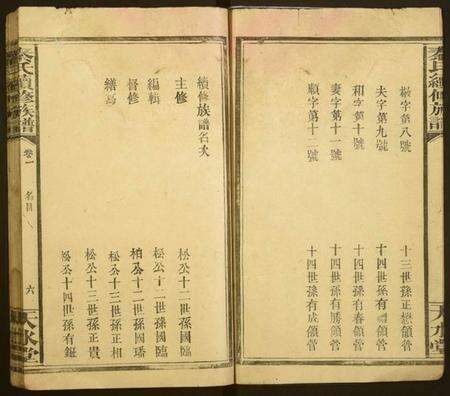 秦氏續修族譜
天水堂
字第八號 十三世孫正 領管
夫字第九號 十四世孫有 領管
和字第十號 十四世孫有春領管
妻字第十一號 十四世孫有勝領管
順字第十二號 十四世孫有成領管
續修族譜名次
主修 松公十二世孫國臨
編輯 松公十二世孫國臨
督修 柏公十二世孫國璠
松公十三世孫正相
繕寫 松公十三世孫正貴
松公十四世孫有鉦
秦氏續修族譜
卷一 名目
六
天水堂